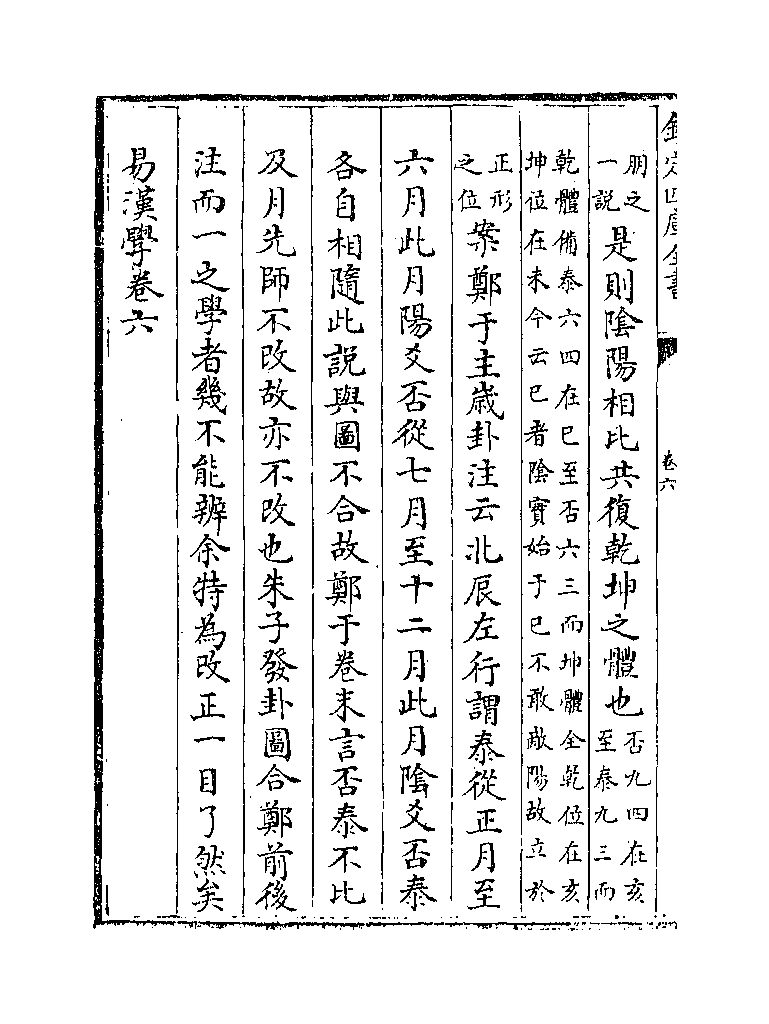 欽定四庫全書
卷六
朋之一説是則陰陽相比共復乾坤之體也否九四在亥至泰九三而
乾體備泰六四在巳至否六三而坤體全乾位在亥
坤位在未今云巳者陰實始于巳不敢敵陽故立於
正形之位案鄭于主歲卦注云北辰左行謂泰從正月至
六月此月陽爻否從七月至十二月此月陰爻否泰
各自相隨此説與圖不合故鄭于卷末言否泰不比
及月先師不改故亦不改也朱子發卦圖合鄭前後
注而一之學者幾不能辨余特為改正一目了然矣
易漢學卷六